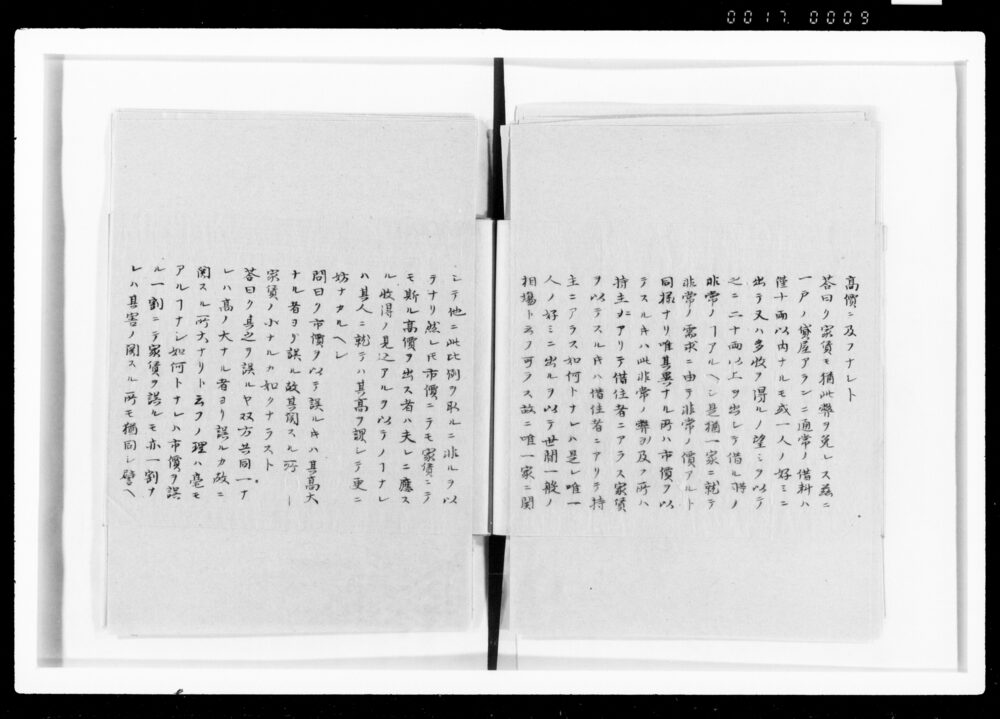 0017 0009
高價ニ及フナレト
答曰ク家賃モ猶此弊ヲ免レス茲ニ
一戸ノ貸屋アランニ通常ノ借料ハ
僅十両以内ナルモ或一人ノ好ミニ
出テ又ハ多收ヲ得ルノ望ミヲ以テ
之ニ二十両以上ヲ出シテ借ル時ノ
非常ノヿアルヘシ是猶一家ニ就テ
非常ノ需求ニ由テ非常ノ價アルト
同樣ナリ唯其異ナル所ハ市價ヲ以
テスル𪜈ハ此非常ノ弊ヲ及フ所ハ
持主ニアリテ借住者ニアラス家賃
ヲ以テスル𪜈ハ借住者ニアリテ持
主ニアラス如何トナレハ是レ唯一
人ノ好ミニ出ルヲ以テ世間一般ノ
相場ト云フ可ラス故ニ唯一家ニ関
シテ他ニ此比例ヲ取ルニ非ルヲ以
テナリ然レ𪜈市價ニテモ家賃ニテ
モ斯ル高價ヲ出ス者ハ夫レニ應ス
ル收得ノ見込アルヲ以テノヿナレ
ハ其人ニ就テハ其高ヲ課シテ更ニ
妨ナカルヘシ
問曰ク市價ヲ以テ誤ルキハ其高大
ナル者ヨリ誤ル故其関スル所
家賃ノ小ナルカ如クナラスト
答曰ク其之ヲ誤ルヤ双方共同一ナ
レハ高ノ大ナル者ヨリ誤ルカ故ニ
関スル所大ナリト云フノ理ハ毫モ
アルヿナシ如何トナレハ市價ヲ誤
ル一割ニテ家賃ヲ誤ルモ亦一割ナ
レハ其害ノ関スル所モ猶同シ譬ヘ